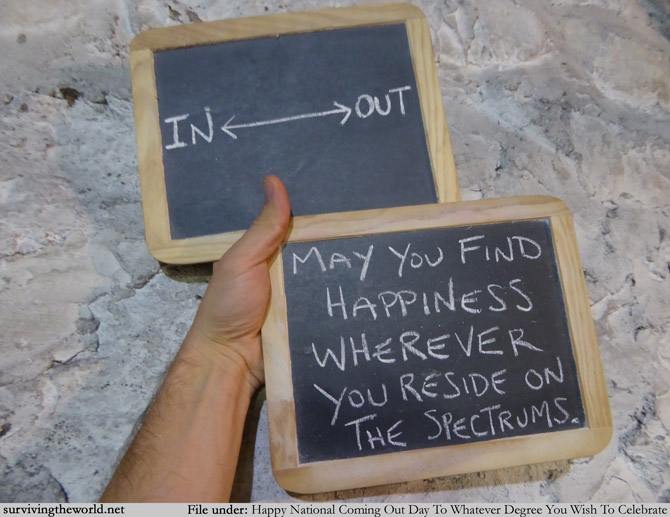 IN ↔ OUT
MAY YOU FIND
HAPPINESS
WHEREVER
YOU RESIDE ON
THE SPECTRUMS.
survivingtheworld.net File under: Happy National Coming Out Day To Whatever Degree You Wish To Celebrate